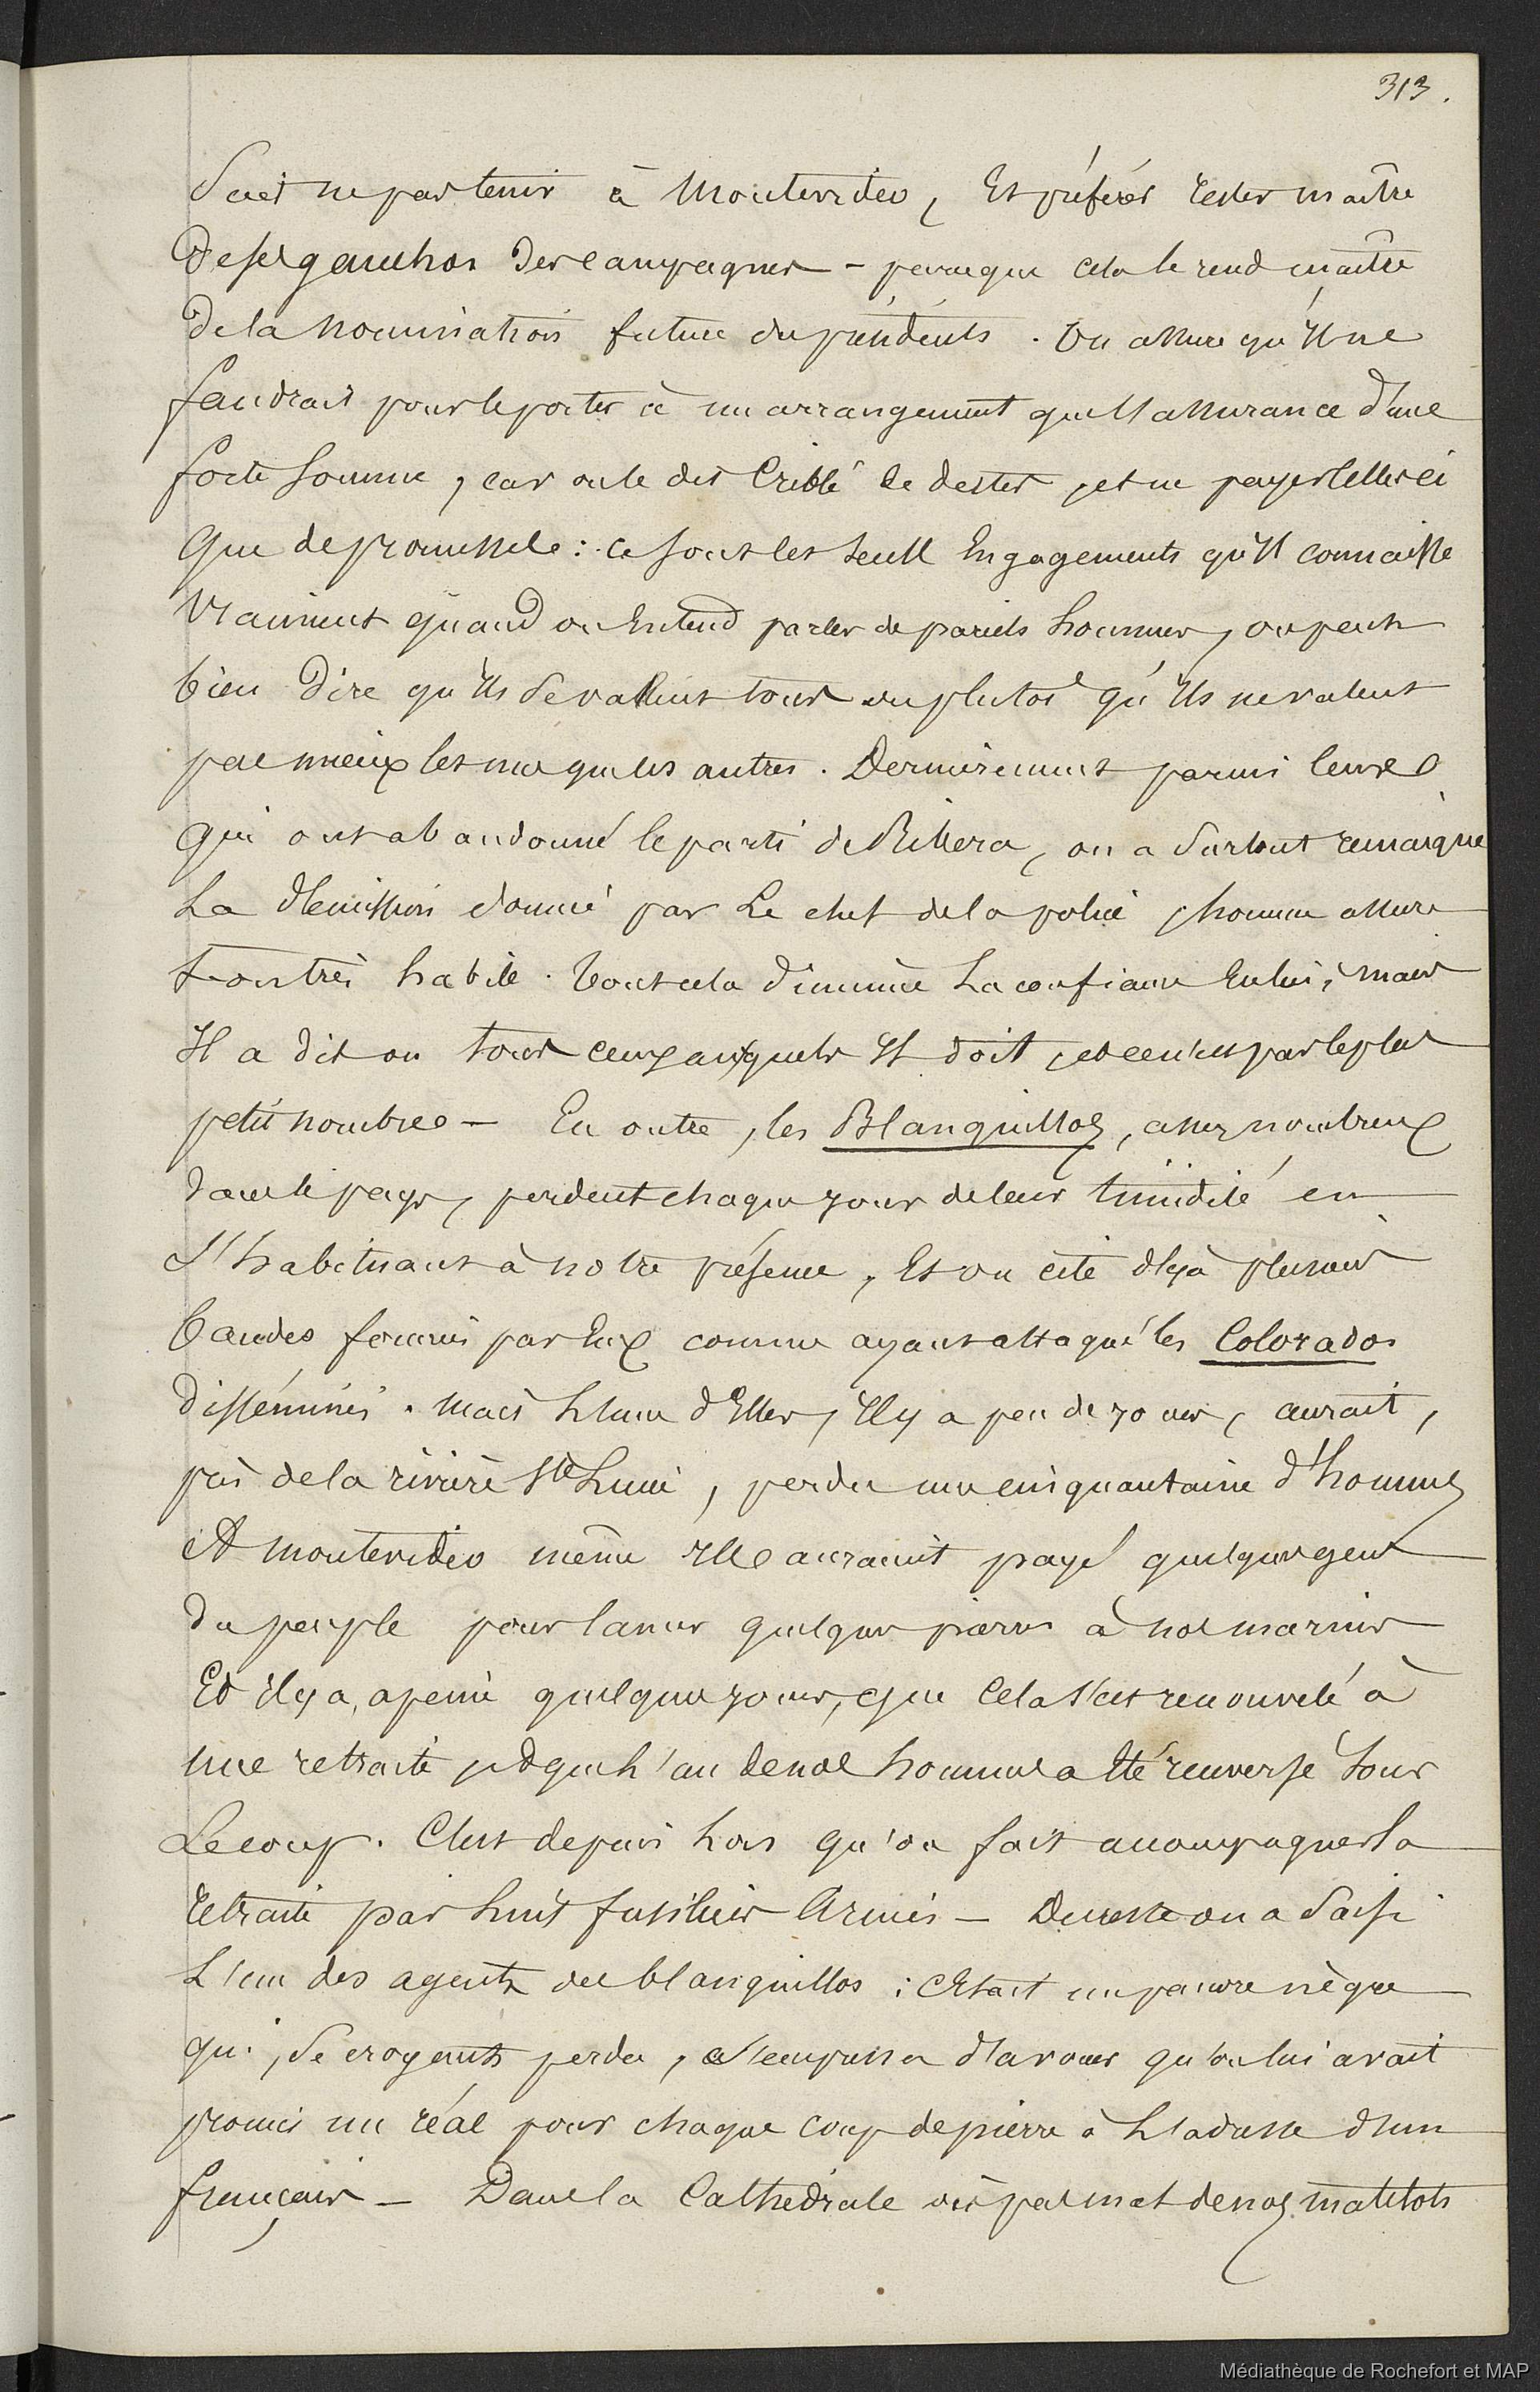 313.
Sait ne pas tenir à Montevideo, Et préférer rester maître
De ses gauchos des campagnes - parceque cela le rend maître
De la nomination future du président. On assure qu'il ne
faudrait pour le porter à un arrangement que l'assurance d'une
forte somme, car on le dit Criblé de dettes, et ne payer celles ci
Que de promesses : ce sont les seuls Engagements qu'il connaisse
Vraiment quand on Entend parler de pareils hommes, on peut
bien Dire qu'ils se valent tous ou plutot qu'ils ne valent
pas mieux les uns que les autres. Dernièrement parmi ceux
qui ont abandonné le parti de Rivera, on a Surtout remarqué
La démission donnée par Le chef de la police, homme assure
t-on très habile. Tout cela diminue La confiance En lui, mais
Il a dit on tous ceux auxquels Il doit, et ce n'est pas le plus
petit nombre - En outre, les Blanquillos, assez nombreux
dans le pays, perdent chaque jour de leur timidité en
S'habituant à notre présence, Et on cite déjà plusieurs
bandes formées par Eux comme ayant attaqué les Colorados
disséminés. Mais L'une d'Elles, Il y a peu de jours, aurait,
près de la rivière Ste Lucie, perdu une cinquantaine d'hommes
A Montevideo même Ils auraient payé quelques gens
du peuple pour lancer quelques pierres à nos marins
Et il y a, a peine quelques jours, que Cela s'est renouvelé à
une retraite, et que L'un de nos hommes a été renversé Sous
Le coup. C'est depuis Lors qu'on fait accompagner la
retraite par huit fusiliers Armés - Du reste on a Saisi
L'un des agents des blanquillos : C'Etait un pauvre nègre
qui, Se croyant perdu, s'empressa d'avouer qu'on lui avait
promis un réal pour chaque coup de pierre à L'adresse d'un
français - Dans la Cathédrale où pas mal de nos matelots
Médiathèque de Rochefort et MAP